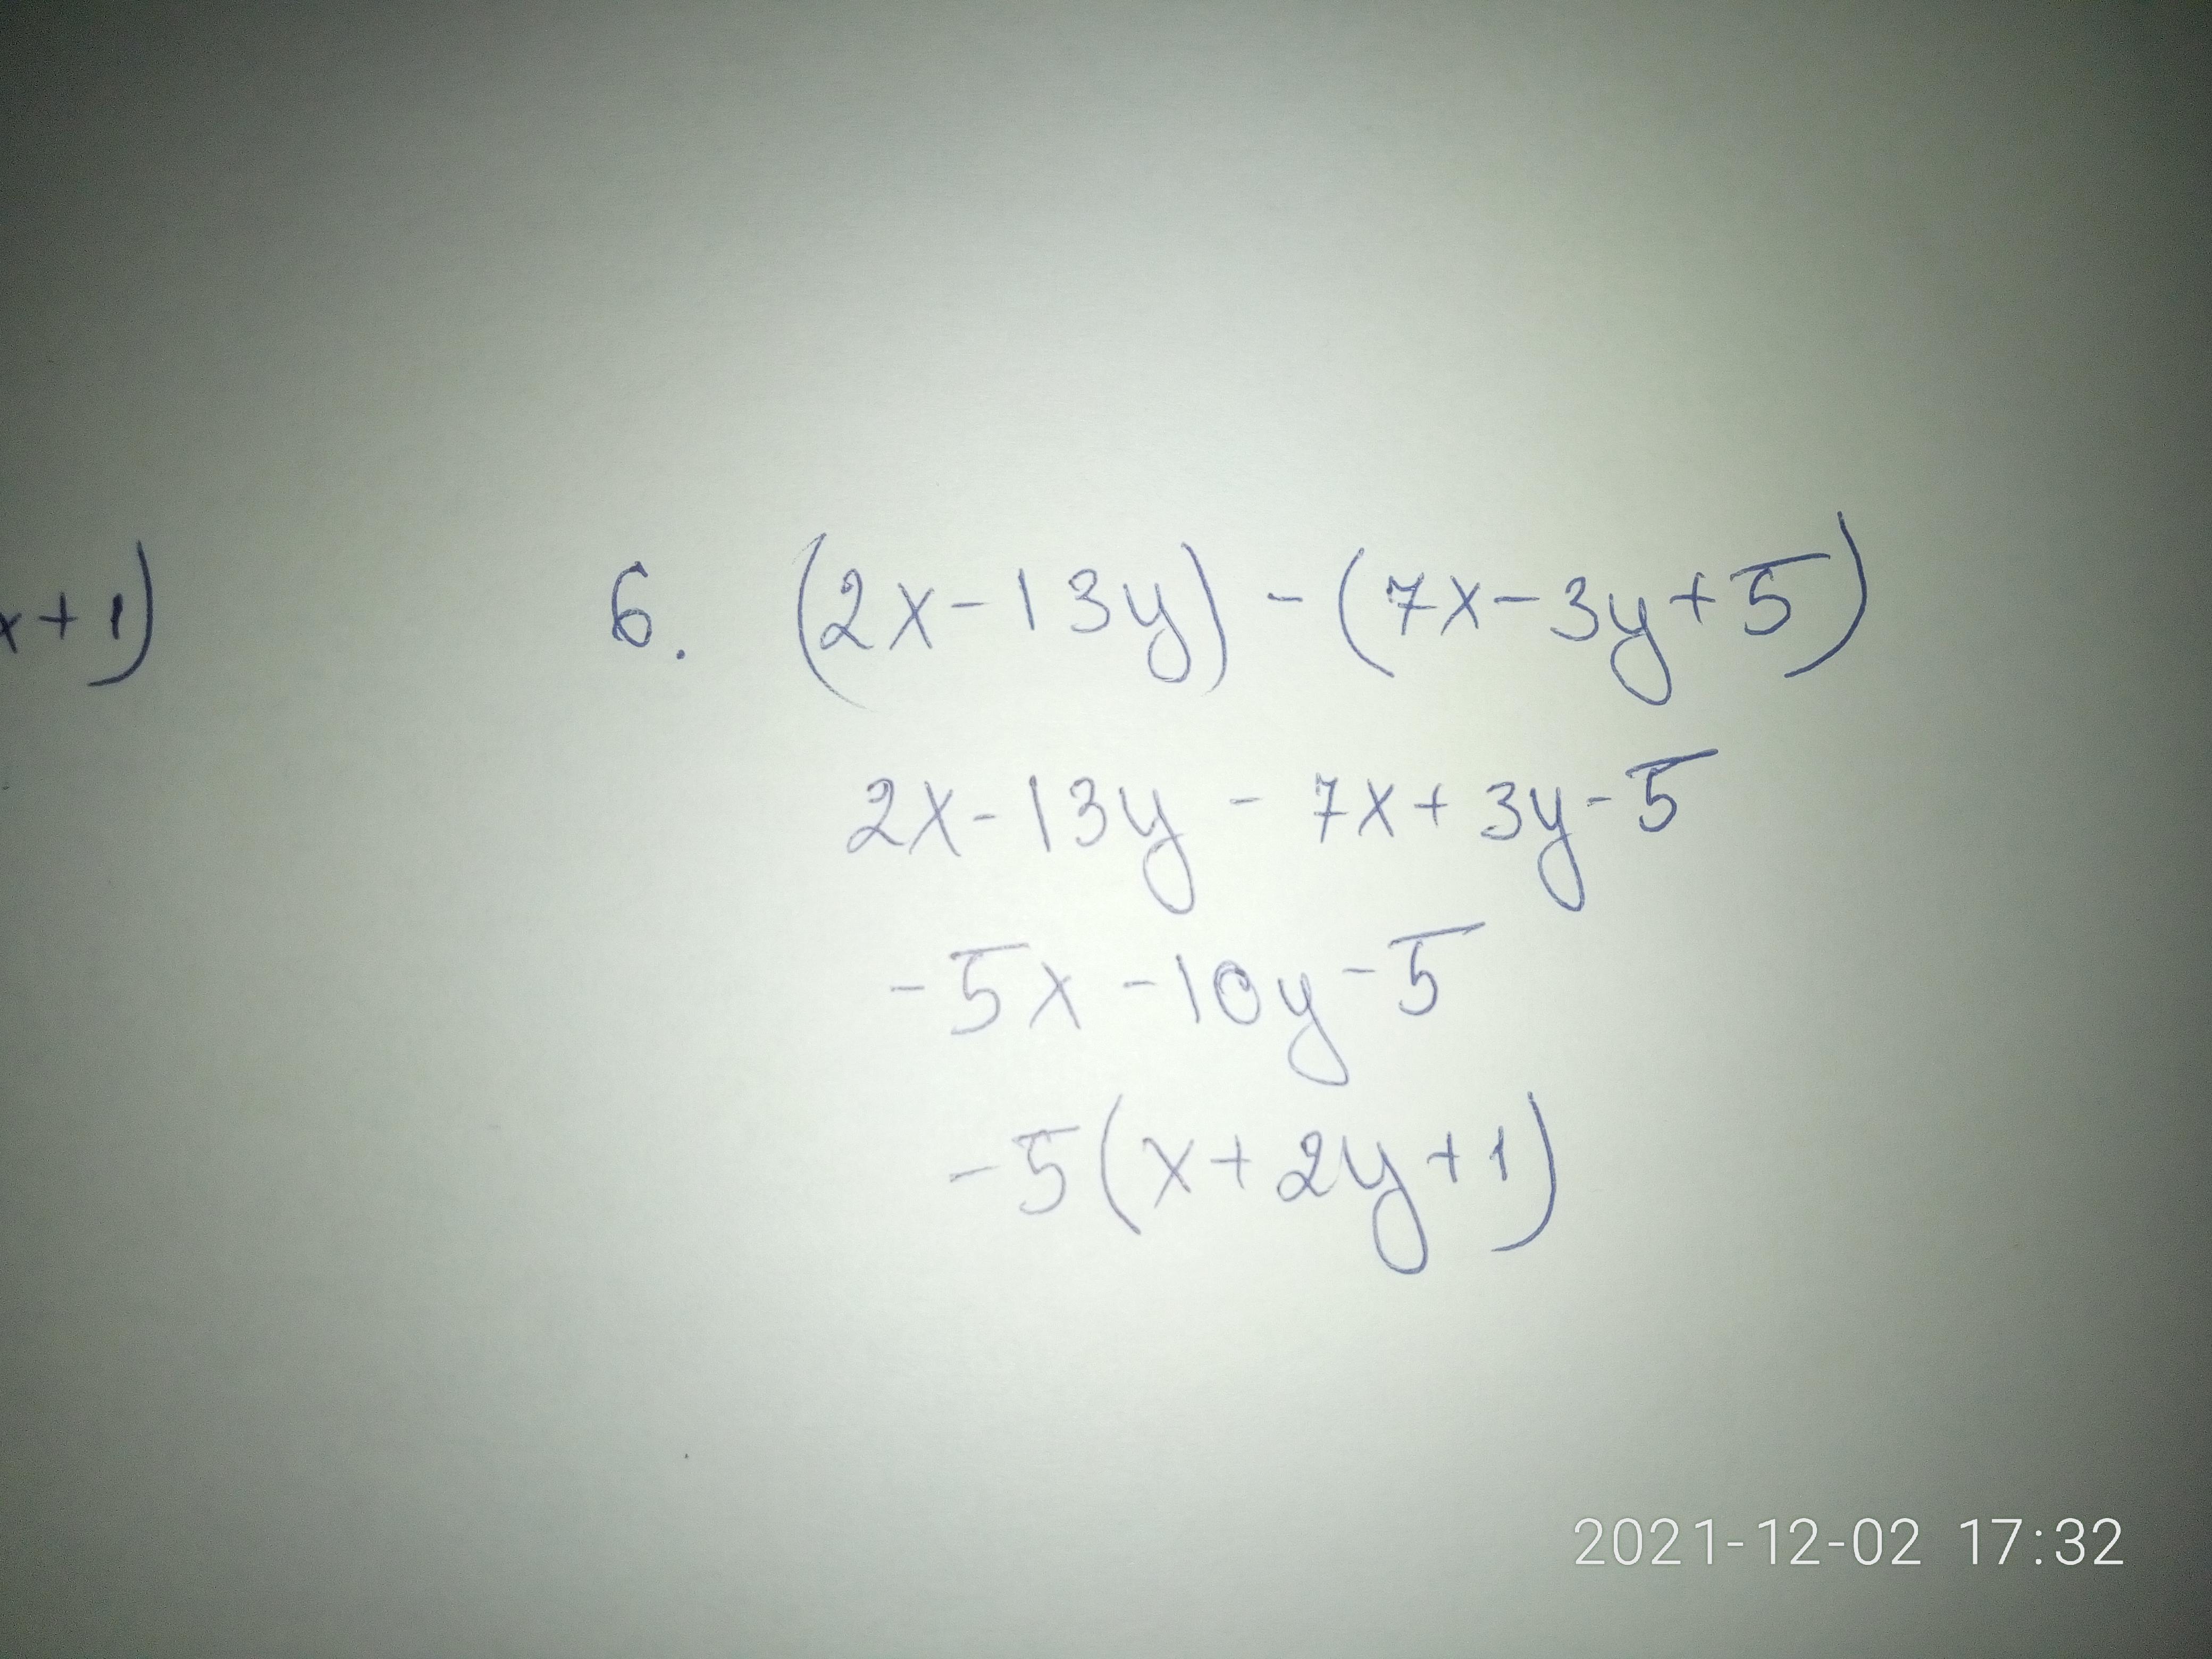 x+1)
6. (2x-13y) - (7x-3y+5)
2x-13y - 7x+3y-5
-5x-10y-5
-5(x+2y+1)
2021-12-02 17:32